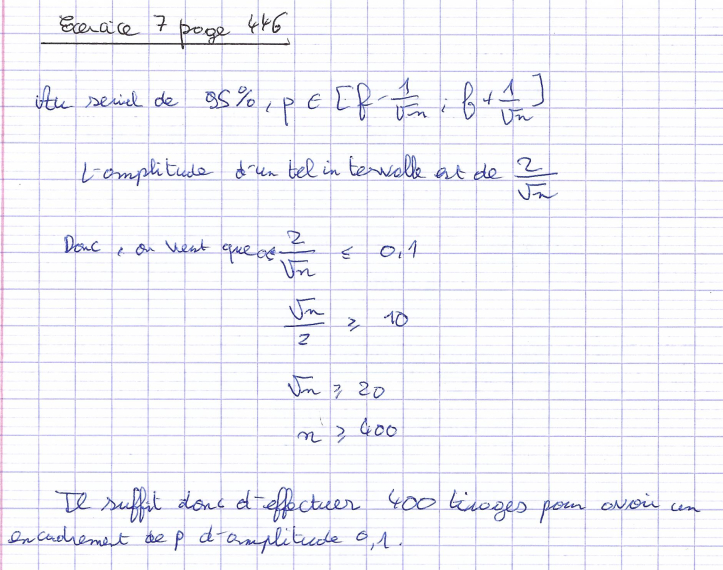 Exercice 7 page 446
Au seuil de 95%, p ∈ [f - 1/√n ; f + 1/√n]
L'amplitude d'un tel intervalle est de 2/√n
Donc, on veut que 0 ≤ 2/√n ≤ 0,1
√n/2 ≥ 10
√n ≥ 20
n ≥ 400
Il suffit donc d'effectuer 400 tirages pour avoir un
encadrement de p d'amplitude 0,1.